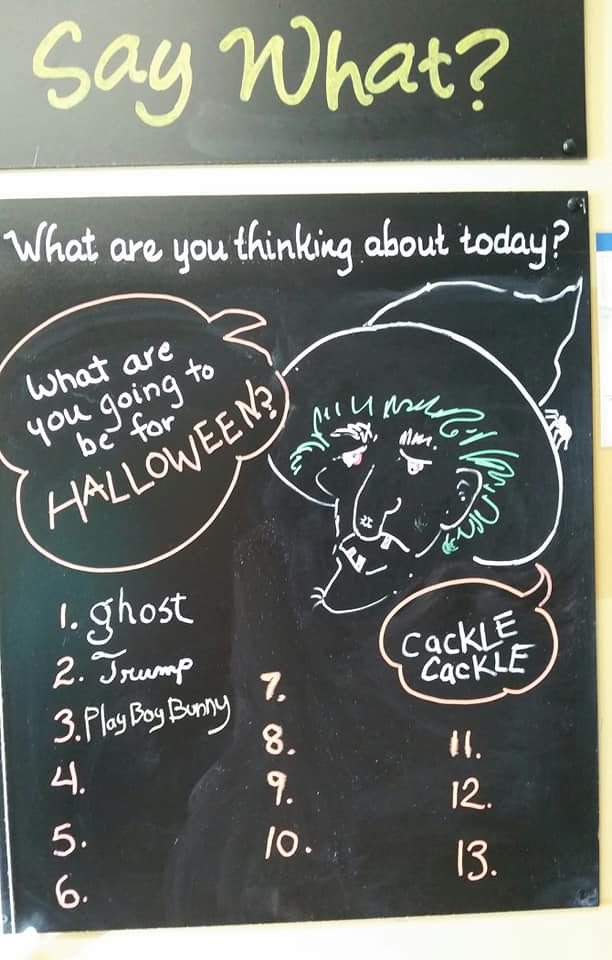 Say What?
What are you thinking about today?
What are
you going to
be for
HALLOWEEN?
1. ghost
2. Trump
3. Play Boy Bunny
4.
5.
6.
7.
8.
9.
10.
CACKLE
CACKLE
11.
12.
13.